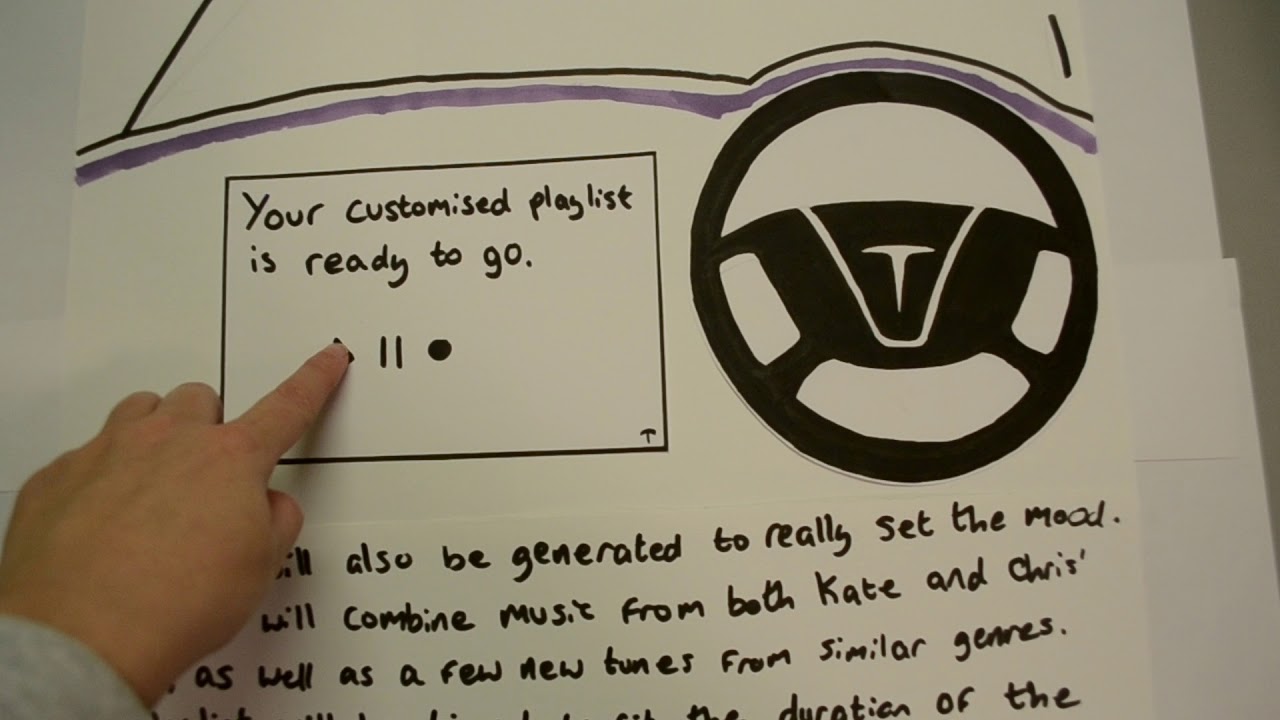 Your customised playlist
is ready to go.
T
T
also be generated to really set the mood.
will combine music from both Kate and Chris'
as well as a few new tunes from similar genres.
the duration of the